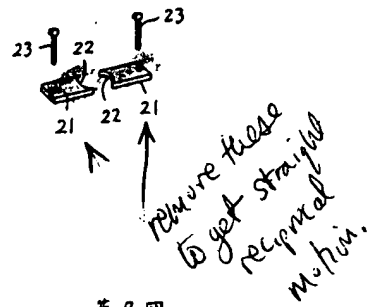 23
23
22
21
22
21
remove these
to get straight
reciprocal
motion.
第 9 図